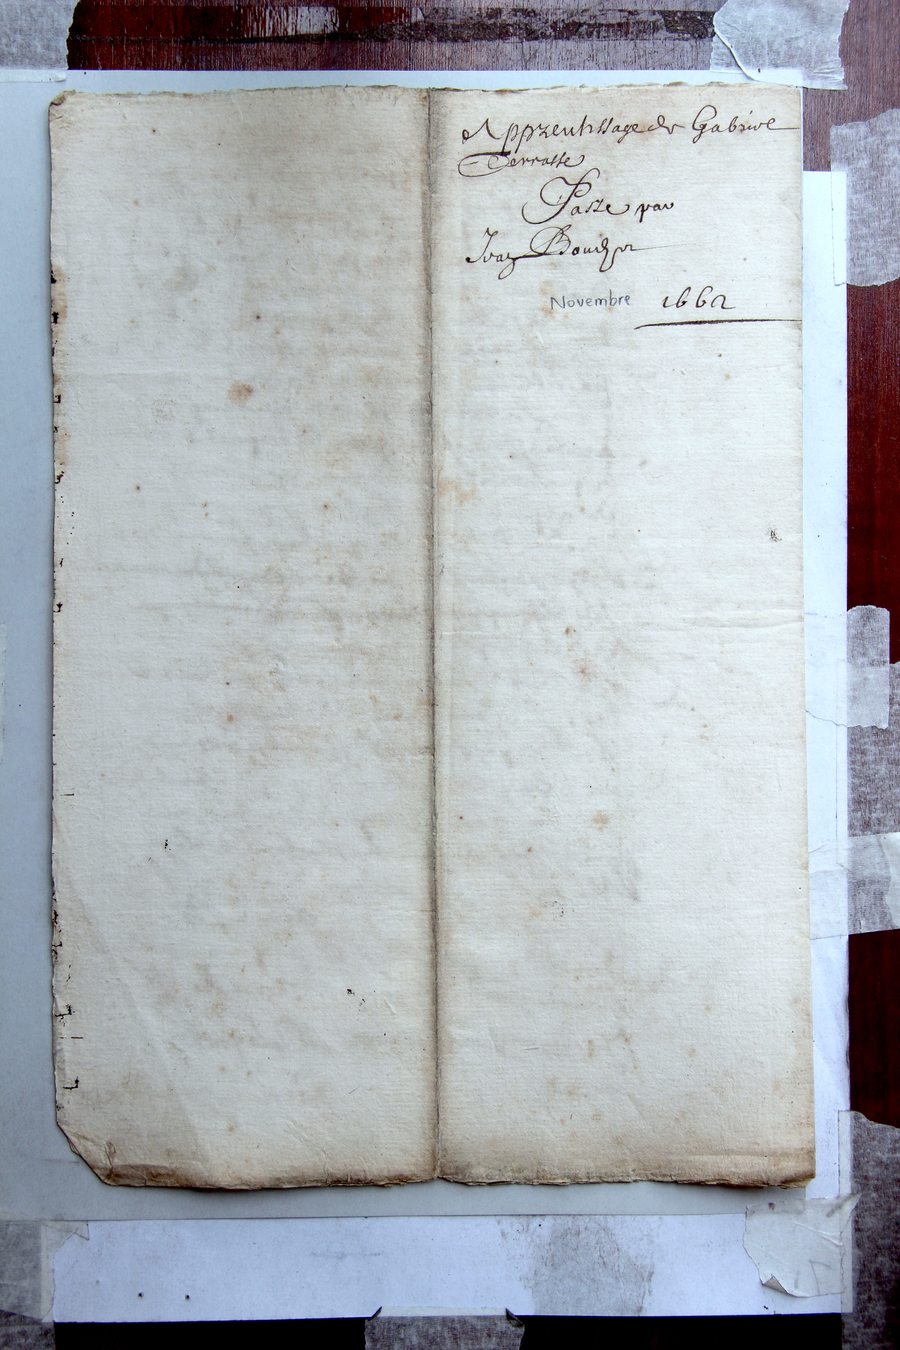 Apprentissage de Gabriel
Terrasse
Passé par
Novembre 1662